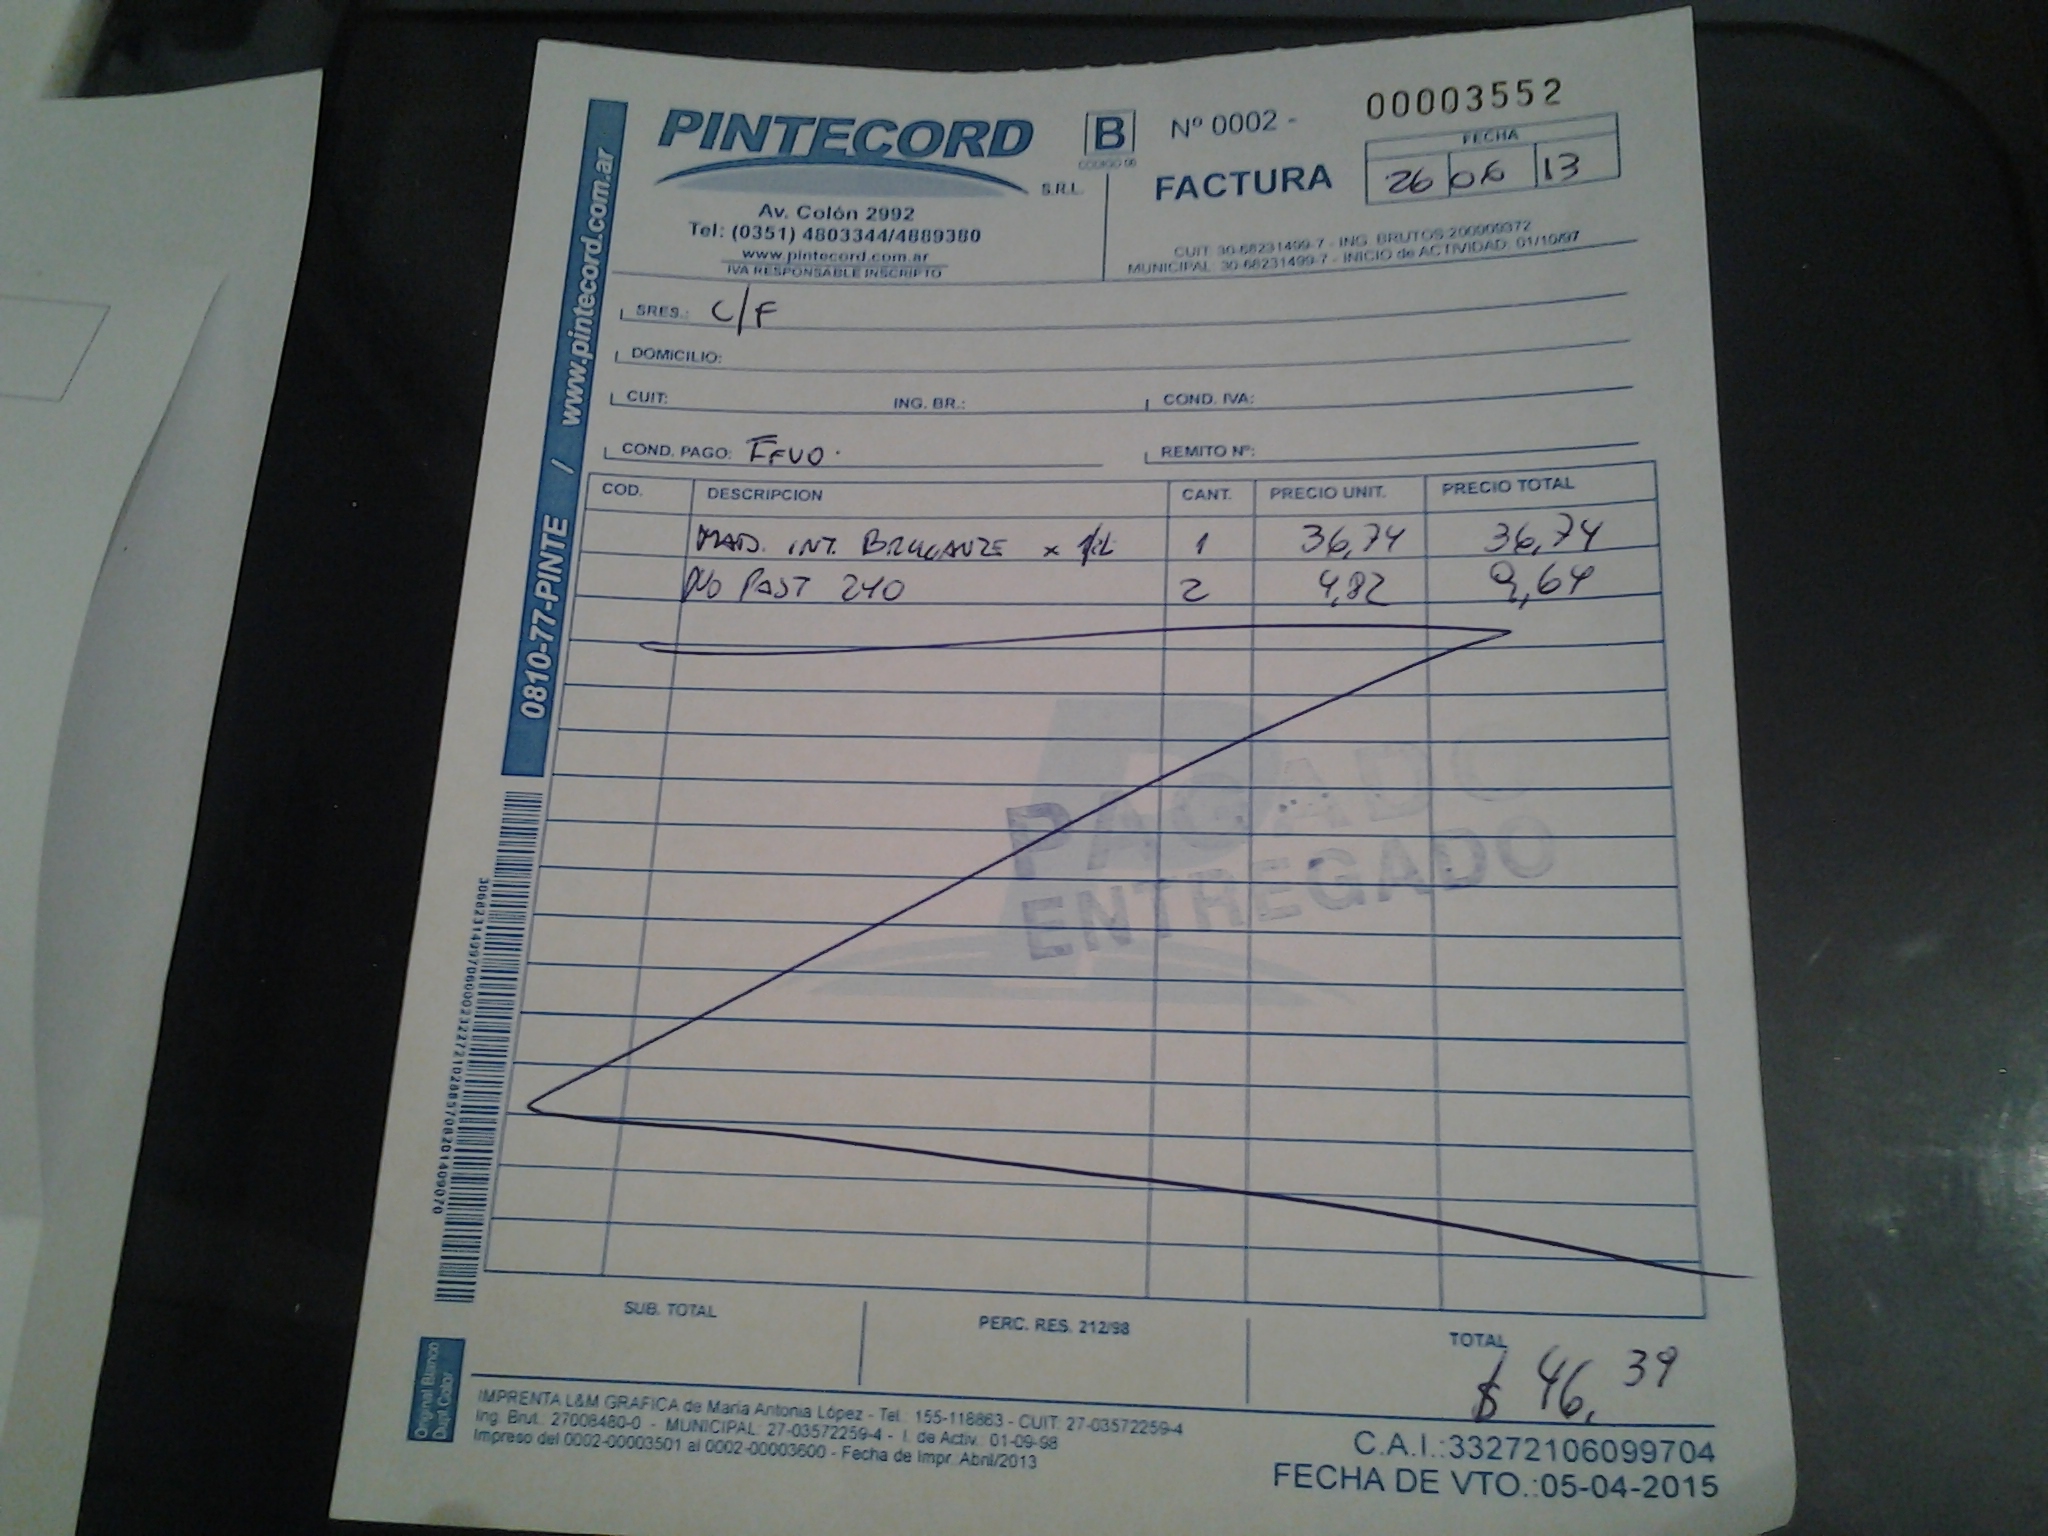 PINTECORD
S.R.L.
Av. Colón 2992
Tel: (0351) 4803344/4889380
www.pintecord.com.ar
IVA RESPONSABLE INSCRIPTO
B
CODIGO 06
Nº 0002 - 00003552
FACTURA
FECHA
26 06 13
CUIT 30-68231499-7 - ING. BRUTOS 200909372
MUNICIPAL 30-68231499-7 - INICIO de ACTIVIDAD 01/10/97
SRES.: C/F
DOMICILIO:
CUIT: ING. BR.: COND. IVA:
COND. PAGO: EFVO. REMITO Nº:
COD. DESCRIPCION CANT. PRECIO UNIT. PRECIO TOTAL
INT. BRILLANTE x 1 36,74 36,74
PAST 240 2 4,82 9,64
PAGADO
ENTREGADO
SUB. TOTAL PERC. RES. 212/98 TOTAL
$ 46,39
0810-77-PINTE / www.pintecord.com.ar
3068231499706000232272102885708201409070
Original Blanco
Dupl Color
IMPRENTA L&M GRAFICA de María Antonia López - Tel. 155-118863 - CUIT: 27-03572259-4
Ing. Brut. 27008480-0 - MUNICIPAL 27-03572259-4 - I. de Activ. 01-09-98
Impreso del 0002-00003501 al 0002-00003600 - Fecha de Impr. Abril/2013
C.A.I.:33272106099704
FECHA DE VTO.:05-04-2015